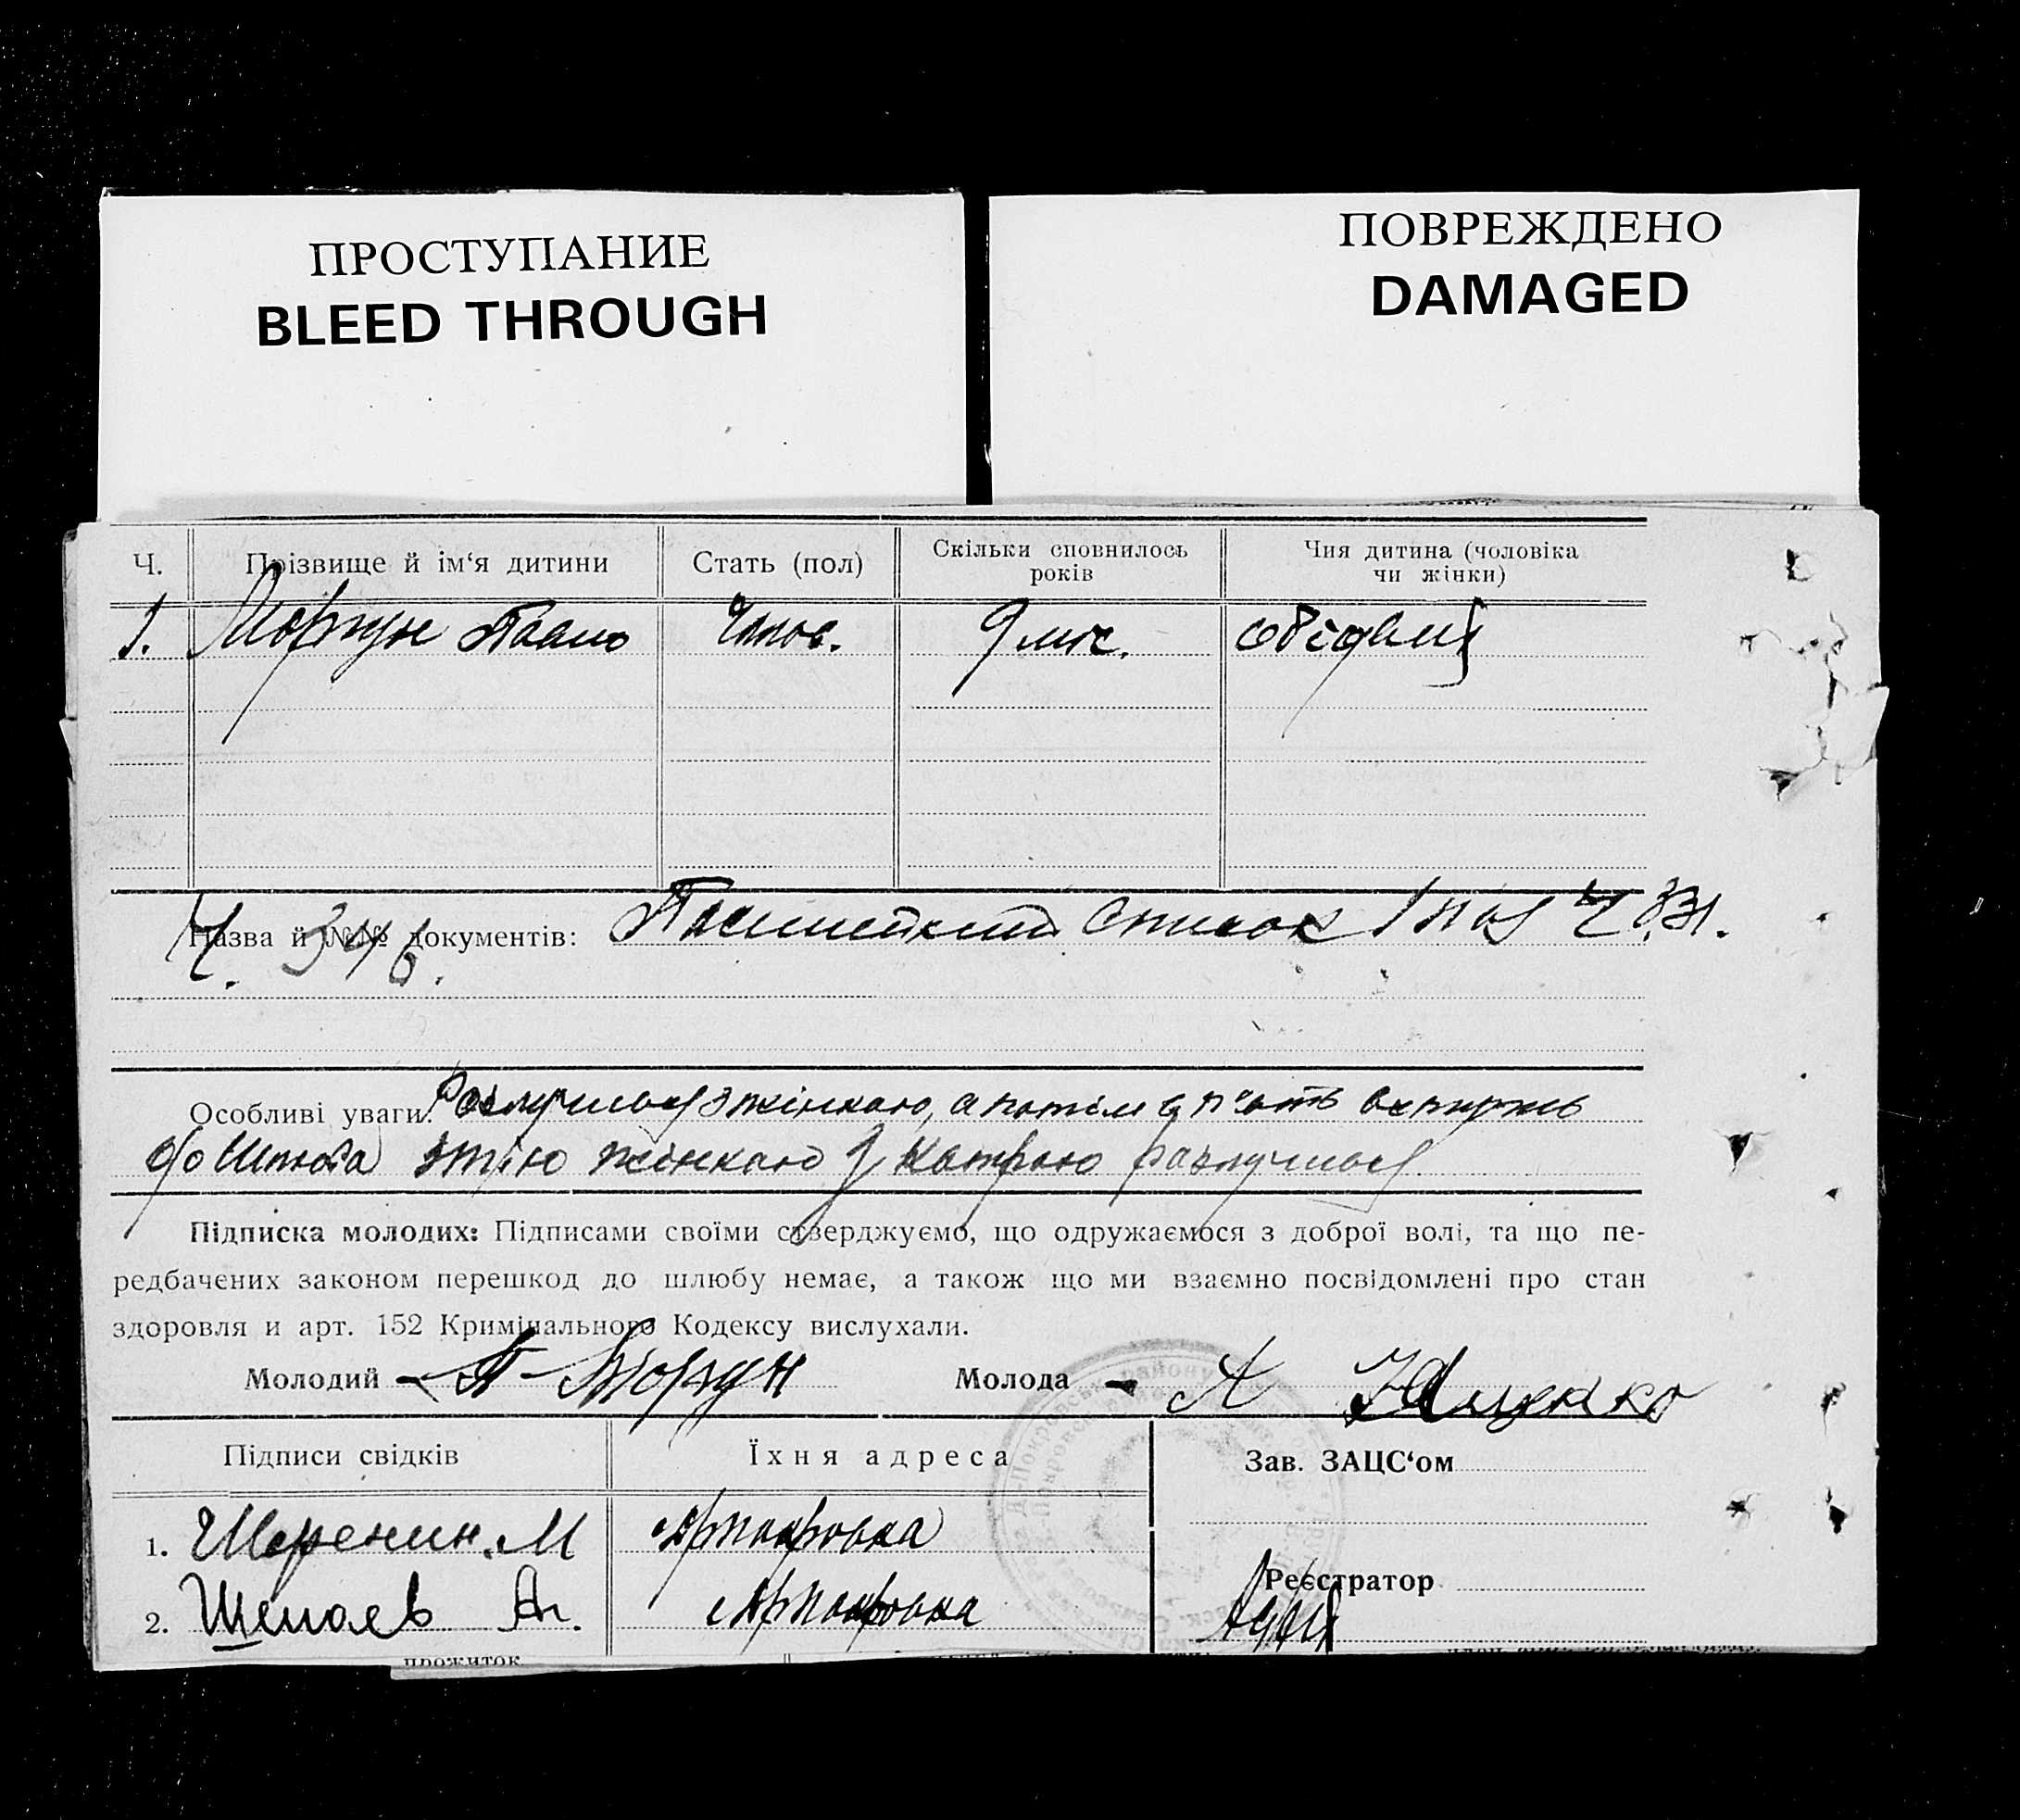 ПРОСТУПАНИЕ
BLEED THROUGH
ПОВРЕЖДЕНО
DAMAGED
Ч.
Прізвище й ім‘я дитини
Стать (пол)
Скільки сповнилось
років
Чия дитина (чоловіка
чи жінки)
1.
Моргун Павло
Чолов.
9 міс.
обідвиї
Назва й №№ документів:
список
Ч. 346.
Особливі уваги: з жінкаю, а потім
до Шлюба з тію жінкаю з катрою разлучився
Підписка молодих: Підписами своїми стверджуємо, що одружаємося з доброї волі, та що пе-
редбачених законом перешкод до шлюбу немає, а також що ми взаємно посвідомлені про стан
здоровля и арт. 152 Кримінального Кодексу вислухали.
Молодий П Моргун
Молода А Ященко
Підписи свідків
Їхня адреса
Зав. ЗАЦС‘ом
1. М
Реєстратор
2.
прожиток